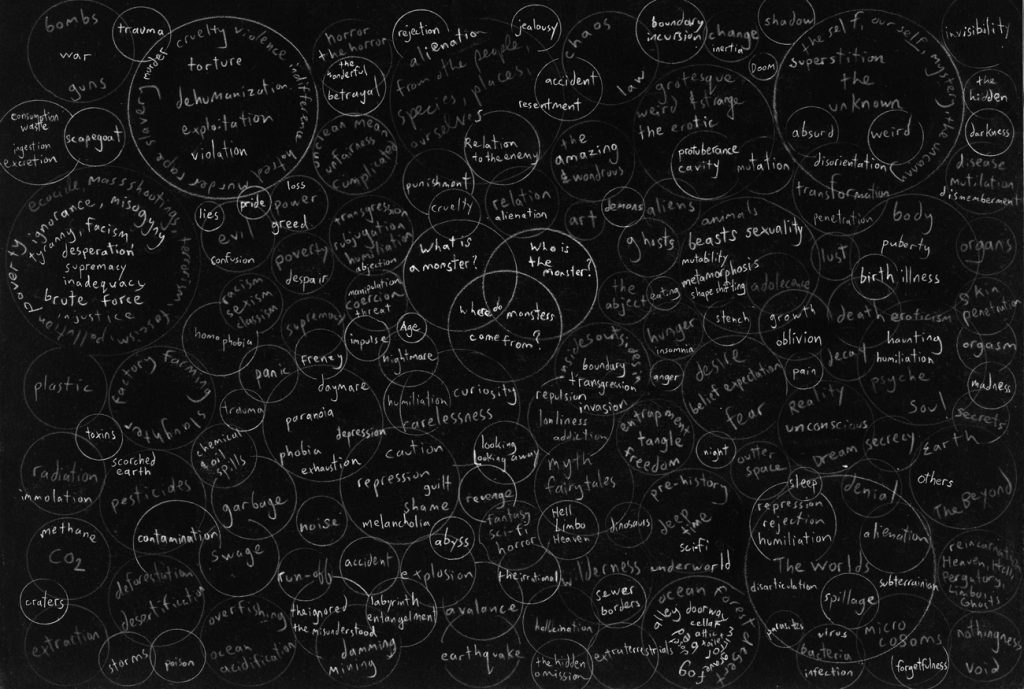 bombs
war
guns
trauma
cruelty violence indifference
hatred murder rape slavery murder
torture
dehumanization
exploitation
violation
horror
the horror
the wonderful
betrayal
rejection
alienation
from other people,
species, places,
ourselves
jealousy
chaos
accident
resentment
law
boundary
incursion
change
inertia
shadow
Doom
the self, our self, mystery, the uncanny
superstition
the
unknown
absurd
weird
disorientation
invisibility
the
hidden
darkness
disease
mutilation
dismemberment
consumption
waste
ingestion
excretion
scapegoat
unclean mean
unfairness
complicated
Relation
to the enemy
the
amazing
& wondrous
grotesque
weird & strange
the erotic
protuberance
cavity
mutation
transformation
punishment
cruelty
relation
alienation
art
demons
aliens
ghosts
animals
beasts sexuality
mutability
metamorphosis
shape shifting
penetration
body
lust
puberty
birth illness
organs
ecocide, mass shootings, terrorism
racism, pollution
poverty
ignorance, misogyny
tyranny, facism
desperation
supremacy
inadequacy
brute force
injustice
lies
pride
loss
power
greed
evil
confusion
poverty
despair
transgression
subjugation
humiliation
abjection
manipulation
coercion
threat
racism
sexism
classism
supremacy
homophobia
What is
a monster?
Who is
the
monster?
where do monsters
come from?
the
abject
eating
adolecence
stench
growth
oblivion
death eroticism
haunting
humiliation
skin
penetration
orgasm
impulse
Age
nightmare
frenzy
panic
daymare
paranoia
depression
phobia
exhaustion
trauma
humiliation
curiosity
carelessness
insides outsides
boundary
transgression
repulsion
invasion
lonliness
addiction
hunger
insomnia
anger
desire
belief expectation
fear
pain
decay
psyche
Reality
unconscious
soul
madness
secrets
plastic
factory farming
slaughter
toxins
scorched
earth
chemical
& oil
spills
radiation
immolation
pesticides
garbage
caution
repression
guilt
shame
melancholia
looking
looking away
revenge
myth
fairytales
entrapment
tangle
freedom
night
outer
space
Dream secrecy
Earth
others
The Beyond
methane
CO2
contamination
swage
noise
abyss
fantasy
sci-fi
horror
Hell
Limbo
Heaven
dinosaurs
pre-history
deep
time
sci-fi
sleep
denial
repression
rejection
humiliation
alienation
The Worlds
disarticulation
subterrainian
spillage
parasites
virus
bacteria
infection
micro
cosoms
forgetfulness
reincarnation
Heaven, Hell
Purgatory,
Limbo
nothingness
void
craters
extraction
deforestation
desertification
storms
poison
overfishing
ocean
acidification
run-off
accident
the ignored
the misunderstood
labyrinth
entanglement
damming
mining
explosion
avalance
earthquake
the irrational
wilderness
underworld
hallucination
the hidden
omission
sewer
borders
extraterrestrials
ocean forest desert
fog
alley doorway
cellar
attic